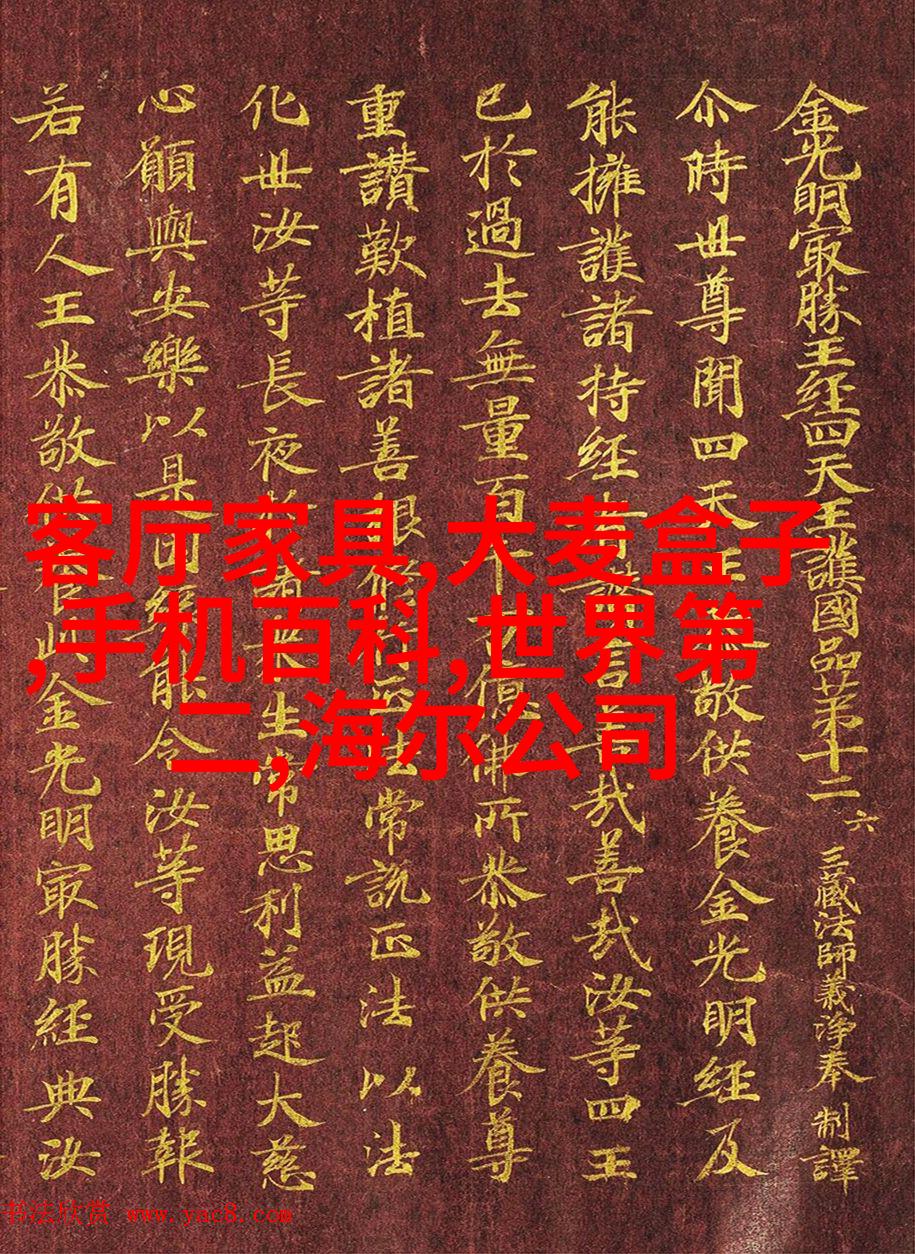 金光明㝡勝王經四天王護國品苐十二 六 三藏法師義淨奉 制譯
尒時世尊聞四天王恭敬供養金光明經及
能擁護諸持經者讚言善哉善哉汝等四王
已於過去無量百千万億佛所恭敬供養尊
重讚歎植諸善根修行正法常說正法以法
化世汝等長夜於諸眾生常思利益起大慈
心願與安樂以是因緣能令汝等現受勝報
若有人王恭敬供養此金光明㝡勝經典汝
客厅家具,大麦盒子
,手机百科,世界第
二,海尔公司
书法欣赏 www.yac8.com